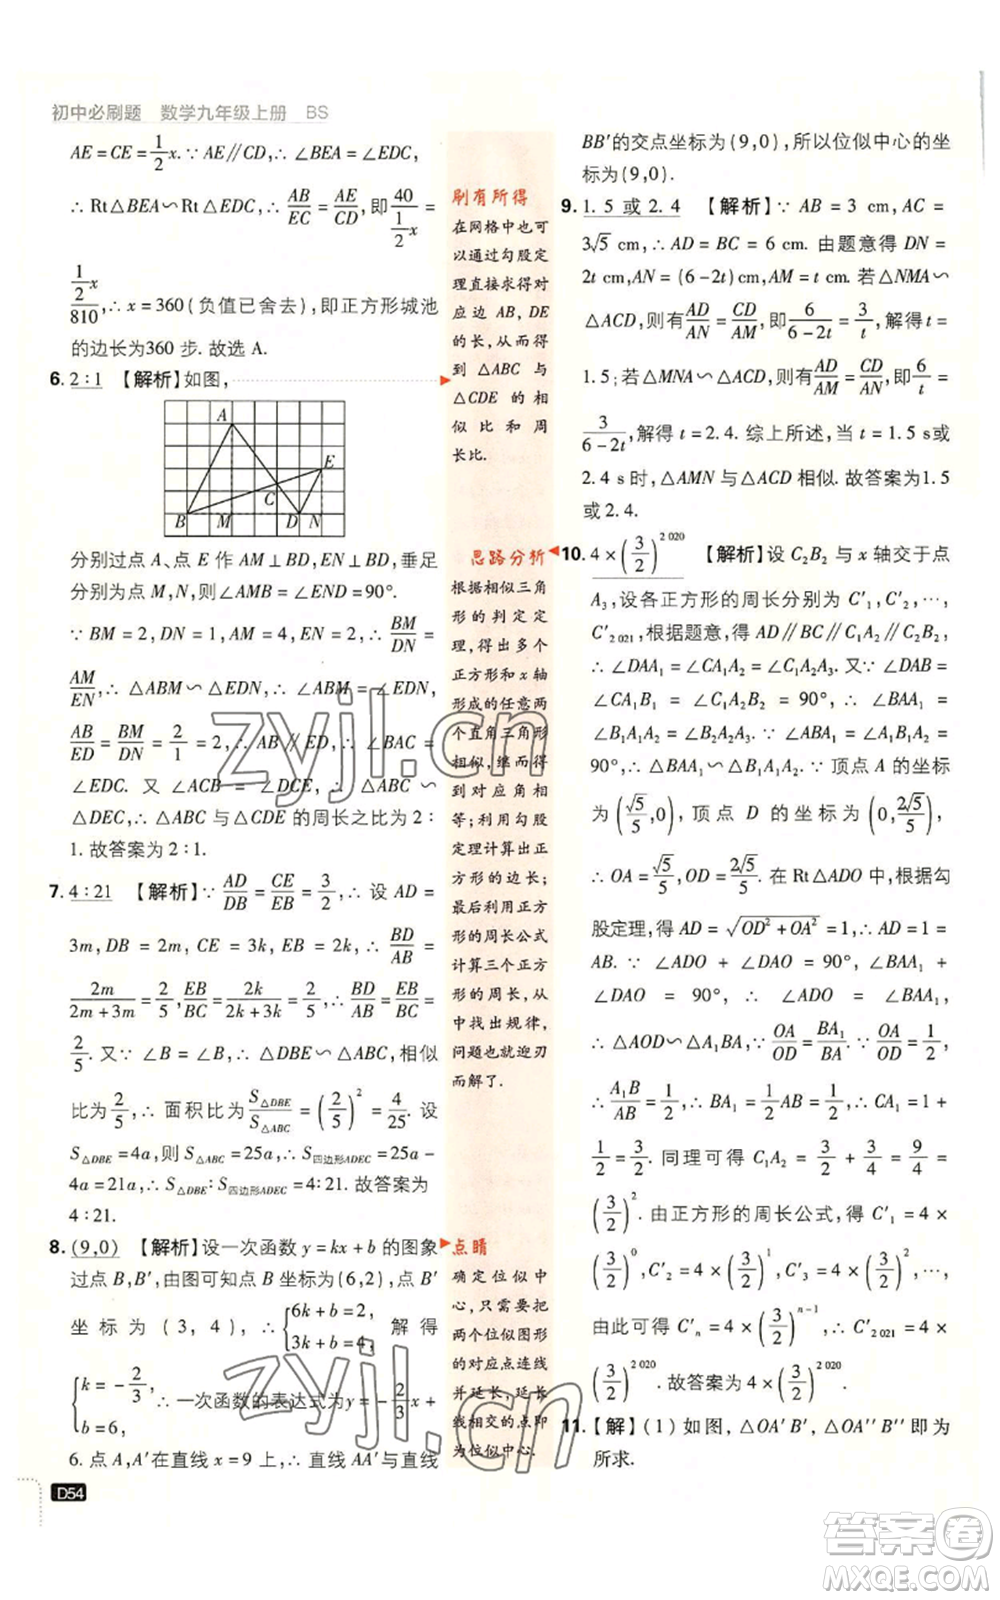 初中必刷题　数学九年级上册　BS
AE=CE=1/2x.∵AE∥CD,∴∠BEA=∠EDC,
∴Rt△BEA∽Rt△EDC,∴AB/EC=AE/CD,即40/(1/2x)=
(1/2x)/810,∴x=360(负值已舍去),即正方形城池
的边长为360步.故选A.
6. 2∶1 【解析】如图,
A
E
C
B M D N
分别过点A、点E作AM⊥BD,EN⊥BD,垂足
分别为点M,N,则∠AMB=∠END=90°.
∵BM=2,DN=1,AM=4,EN=2,∴BM/DN=
AM/EN,∴△ABM∽△EDN,∴∠ABM=∠EDN,
AB/ED=BM/DN=2/1=2,∴AB∥DE,∴∠BAC=
∠EDC.又∵∠ACB=∠ECD,∴△ABC∽
△DEC,∴△ABC与△CDE的周长之比为2∶
1.故答案为2∶1.
7. 4∶21 【解析】∵AD/DB=CE/EB=3/2,∴设AD=
3m,DB=2m,CE=3k,EB=2k,∴BD/AB=
2m/(2m+3m)=2/5,EB/BC=2k/(2k+3k)=2/5,∴BD/AB=EB/BC=
2/5.又∵∠B=∠B,∴△DBE∽△ABC,相似
比为2/5,∴面积比为S△DBE/S△ABC=(2/5)²=4/25.设
S△DBE=4a,则S△ABC=25a,∴S四边形ADEC=25a-
4a=21a,∴S△DBE∶S四边形ADEC=4∶21.故答案为
4∶21.
8. (9,0) 【解析】设一次函数y=kx+b的图象
过点B,B′,由图可知点B坐标为(6,2),点B′
坐标为(3,4),∴{6k+b=2, 3k+b=4, 解得
{k=-2/3, b=6, ∴一次函数的表达式为y=-2/3x+
6.点A,A′在直线x=9上,∴直线AA′与直线
D54
刷有所得
在网格中也可
以通过勾股定
理直接求得对
应边AB,DE
的长,从而得
到△ABC与
△CDE的相
似比和周
长比.
思路分析
根据相似三角
形的判定定
理,得出多个
正方形和x轴
形成的任意两
个直角三角形
相似,继而得
到对应角相
等;利用勾股
定理计算出正
方形的边长;
最后利用正方
形的周长公式
计算三个正方
形的周长,从
中找出规律,
问题也就迎刃
而解了.
点睛
确定位似中
心,只需要把
两个位似图形
的对应点连线
并延长,延长
线相交的点即
为位似中心.
BB′的交点坐标为(9,0),所以位似中心的坐
标为(9,0).
9. 1.5或2.4 【解析】∵AB=3 cm,AC=
3√5 cm,∴AD=BC=6 cm.由题意得DN=
2t cm,AN=(6-2t)cm,AM=t cm.若△NMA∽
△ACD,则有AD/AN=CD/AM,即6/(6-2t)=3/t,解得t=
1.5;若△MNA∽△ACD,则有AD/AM=CD/AN,即6/t=
3/(6-2t),解得t=2.4.综上所述,当t=1.5 s或
2.4 s时,△AMN与△ACD相似.故答案为1.5
或2.4.
10. 4×(3/2)²⁰²⁰ 【解析】设C₂B₂与x轴交于点
A₃,设各正方形的周长分别为C′₁,C′₂,…,
C′₂₀₂₁,根据题意,得AD∥BC∥C₁A₂∥C₂B₂,
∴∠DAA₁=∠CA₁A₂=∠C₁A₂A₃.又∵∠DAB
=∠CA₁B₁=∠C₁A₂B₂=90°,∴∠BAA₁=
∠B₁A₁A₂=∠B₂A₂A₃.∵∠ABA₁=∠A₁B₁A₂=
90°,∴△BAA₁∽△B₁A₁A₂.∵顶点A的坐标
为(√5/5,0),顶点D的坐标为(0,2√5/5),
∴OA=√5/5,OD=2√5/5.在Rt△ADO中,根据勾
股定理,得AD=√(OD²+OA²)=1,∴AD=1=
AB.∵∠ADO+∠DAO=90°,∠BAA₁+
∠DAO=90°,∴∠ADO=∠BAA₁,
∴△AOD∽△A₁BA,∴OA/OD=BA₁/BA.∵OA/OD=1/2,
∴A₁B/AB=1/2,∴BA₁=1/2AB=1/2,∴CA₁=1+
1/2=3/2.同理可得C₁A₂=3/2+3/4=9/4=
(3/2)².由正方形的周长公式,得C′₁=4×
(3/2)⁰,C′₂=4×(3/2)¹,C′₃=4×(3/2)²,…,
由此可得C′ₙ=4×(3/2)ⁿ⁻¹,∴C′₂₀₂₁=4×
(3/2)²⁰²⁰.故答案为4×(3/2)²⁰²⁰.
11. 【解】(1)如图,△OA′B′,△OA″B″即为
所求.
zyjl.cn
zyjl.cn
答案卷
MXQE.COM